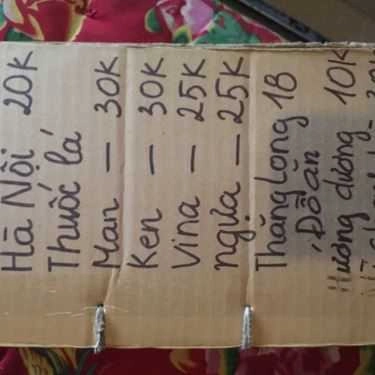 Hà Nội 20K
Thuốc lá
Man - 30K
Ken - 30K
Vina - 25K
ngựa - 25K
Thăng Long 18
, Đồ ăn
Hướng dương 10K